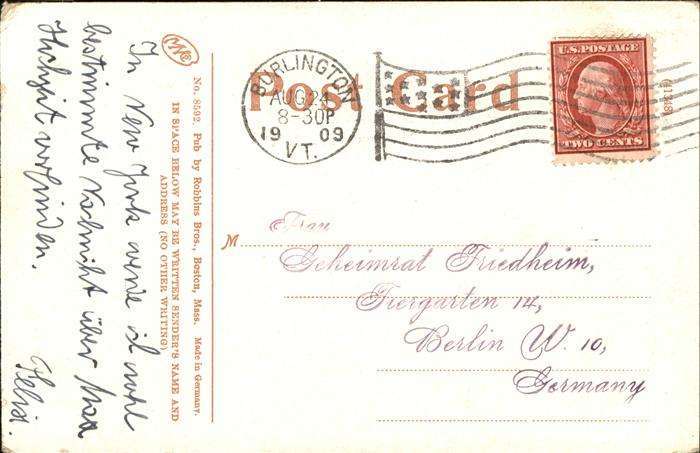 Post Card
BURLINGTON
AUG 24
8-30P
1909
VT.
U.S. POSTAGE
TWO CENTS
No. 8592. Pub by Robbins Bros., Boston, Mass. Made in Germany.
IN SPACE BELOW MAY BE WRITTEN SENDER'S NAME AND
ADDRESS (NO OTHER WRITING)
In New York werde ich wohl
bestimmte Nachricht über
Hochzeit vorfinden.
Felix.
M
Frau
Geheimrat Friedheim,
Tiergarten 14,
Berlin W. 10,
Germany